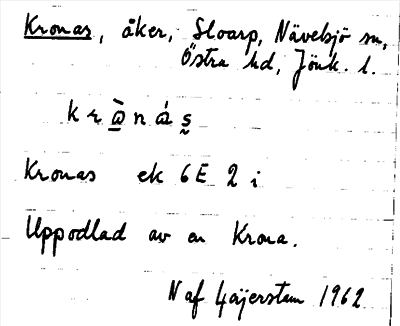 Kronas, åker, Sloarp, Nävelsjö sn,
Östra hd, Jönk. l.
k r ò̲ n á s̰
Kronas ek 6E 2 i
Uppodlad av en Krona.
N af Ugglas 1962